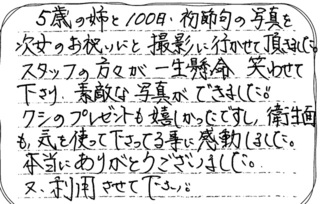 5歳の姉と100日・初節句の写真を
次女のお祝いにと撮影に行かせて頂きました。
スタッフの方々が一生懸命 笑わせて
下さり、素敵な写真ができました。
クシのプレゼントも嬉しかったですし、衛生面
も、気を使って下さってる事に感動しました。
本当にありがとうございました。
又、利用させて下さい。